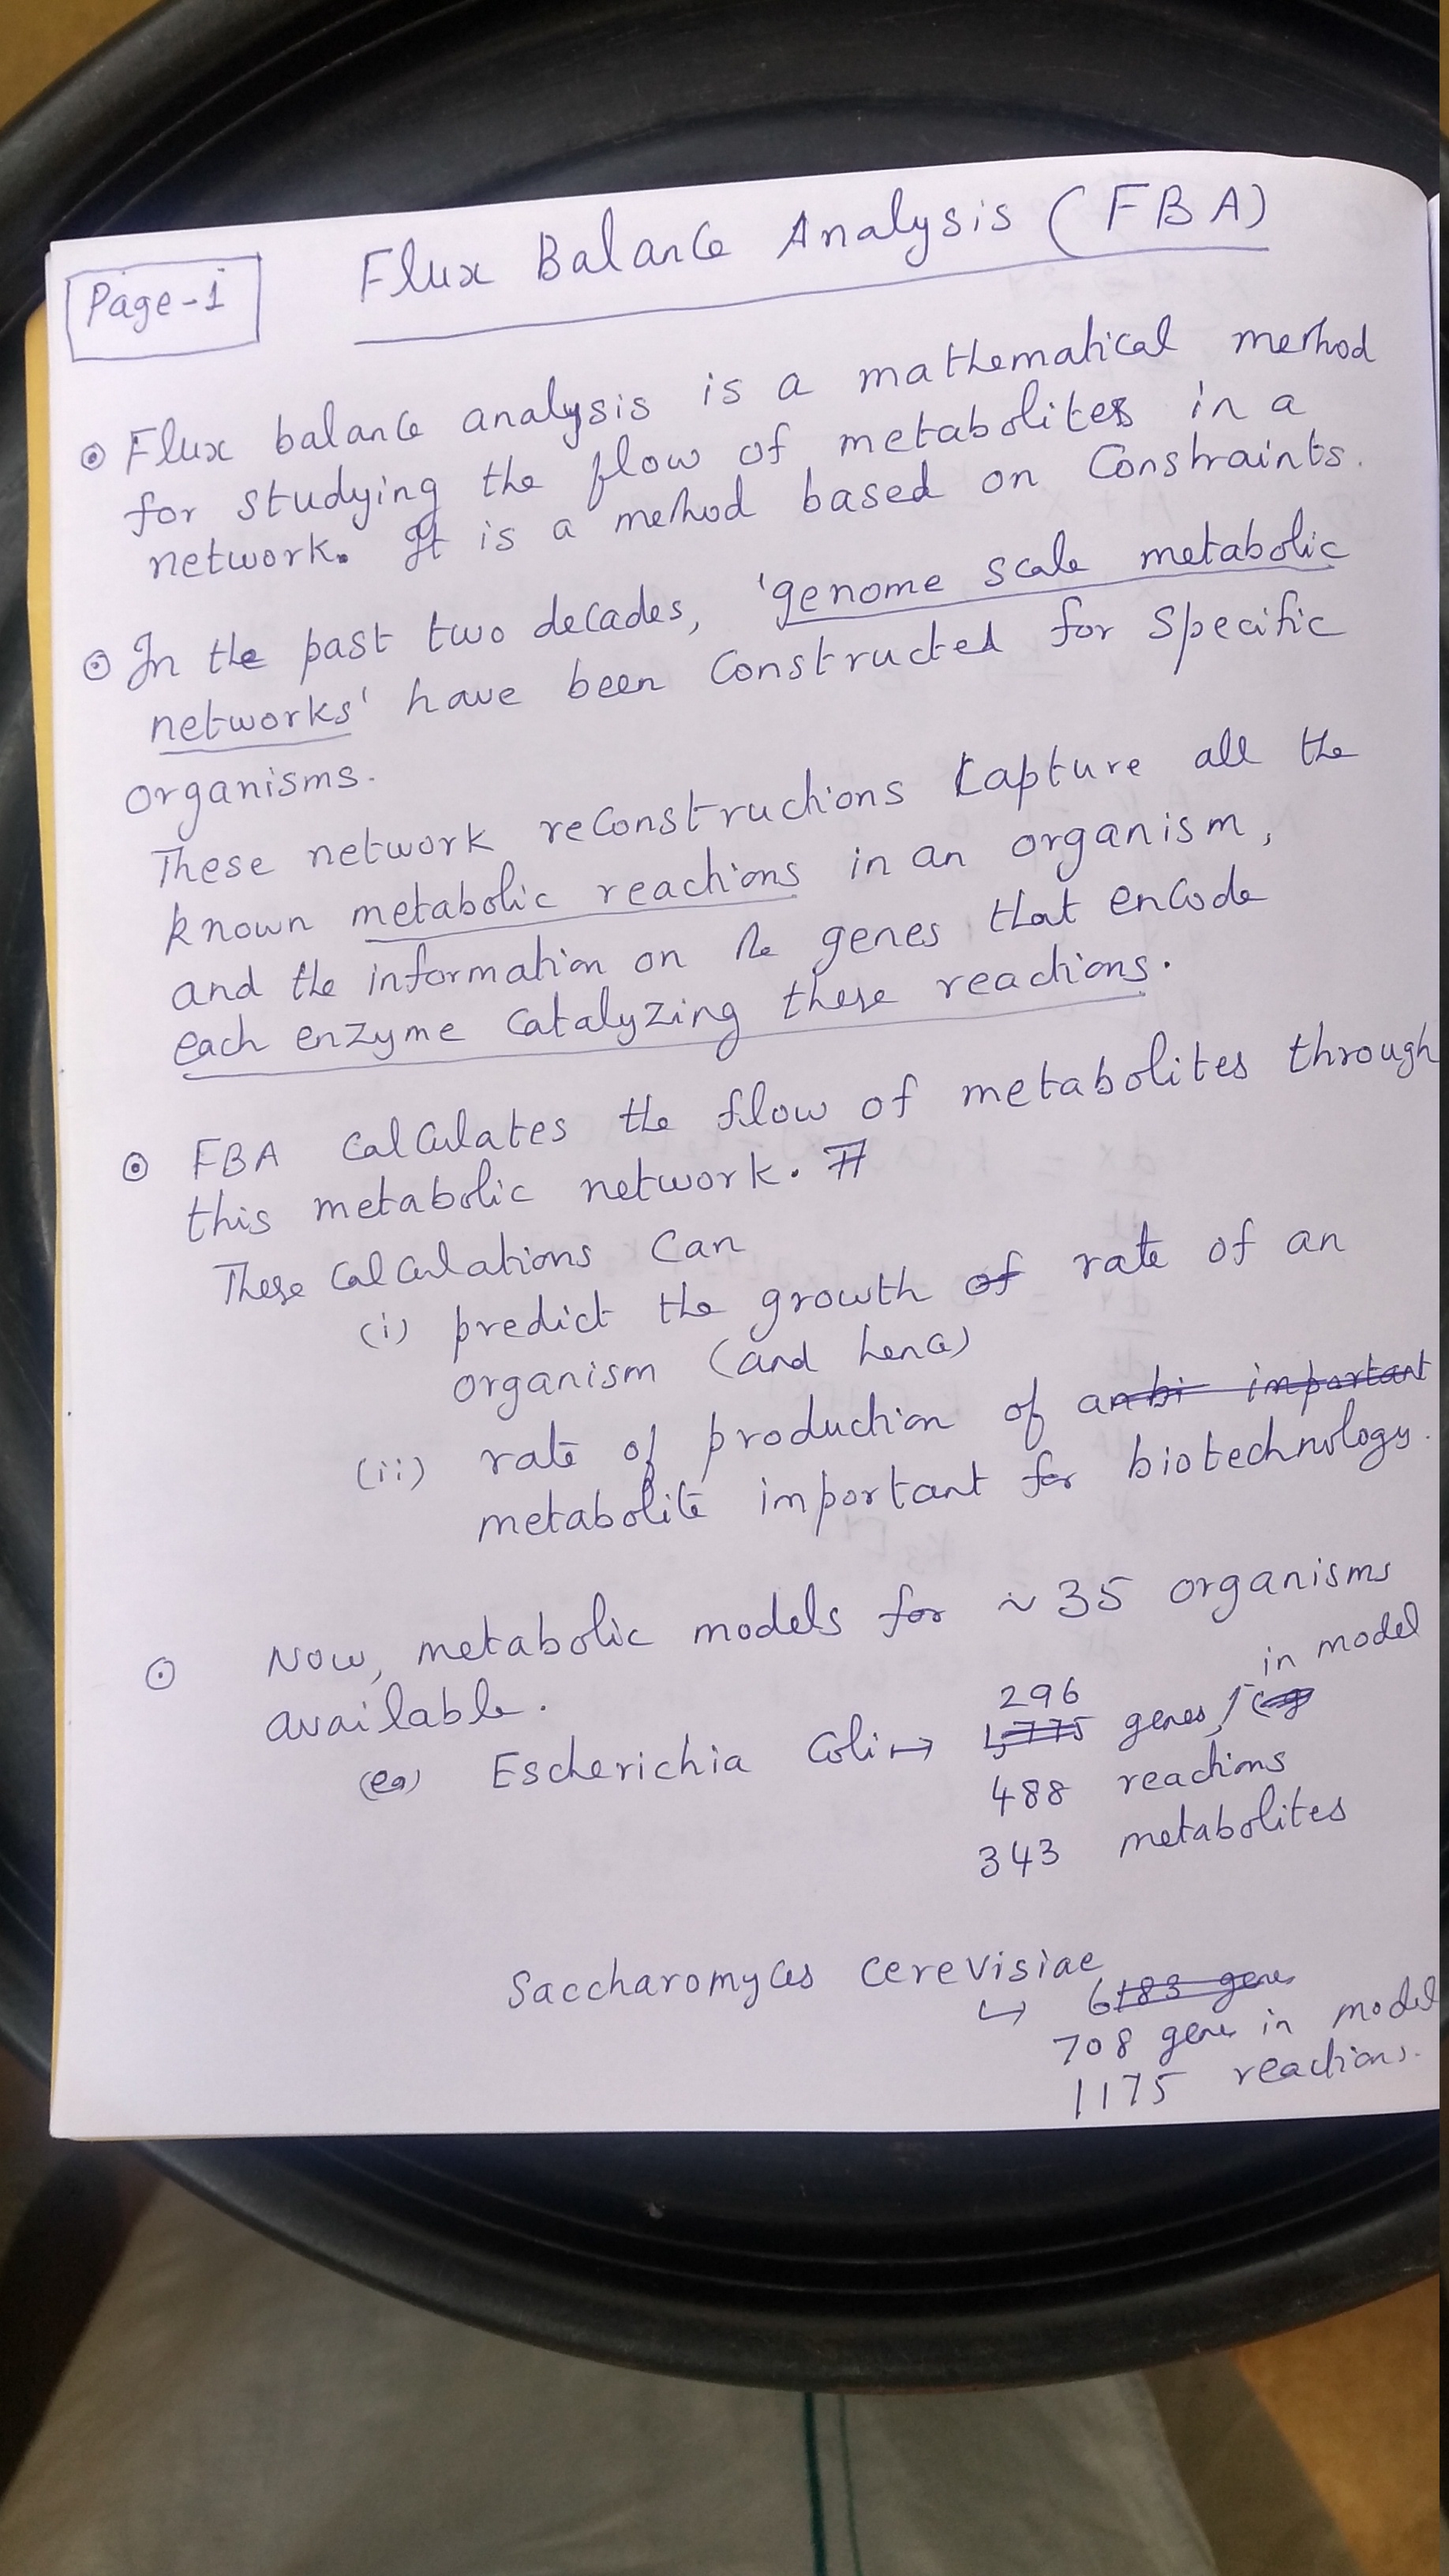 Page-1
Flux Balance Analysis (FBA)
⊙ Flux balance analysis is a mathematical method
for studying the flow of metabolites in a
network. It is a method based on constraints.
⊙ In the past two decades, 'genome scale metabolic
networks' have been constructed for specific
organisms.
These network reconstructions capture all the
known metabolic reactions in an organism,
and the information on the genes that encode
each enzyme catalyzing these reactions.
⊙ FBA calculates the flow of metabolites through
this metabolic network.
These calculations can
(i) predict the growth of rate of an
organism (and hence)
(ii) rate of production of important
metabolite important for biotechnology.
⊙ Now, metabolic models for ~35 organisms
available.
in model
296
(eg) Escherichia coli ↦ genes
488 reactions
343 metabolites
Saccharomyces cerevisiae
↪ 6183 genes
708 genes in model
1175 reactions.